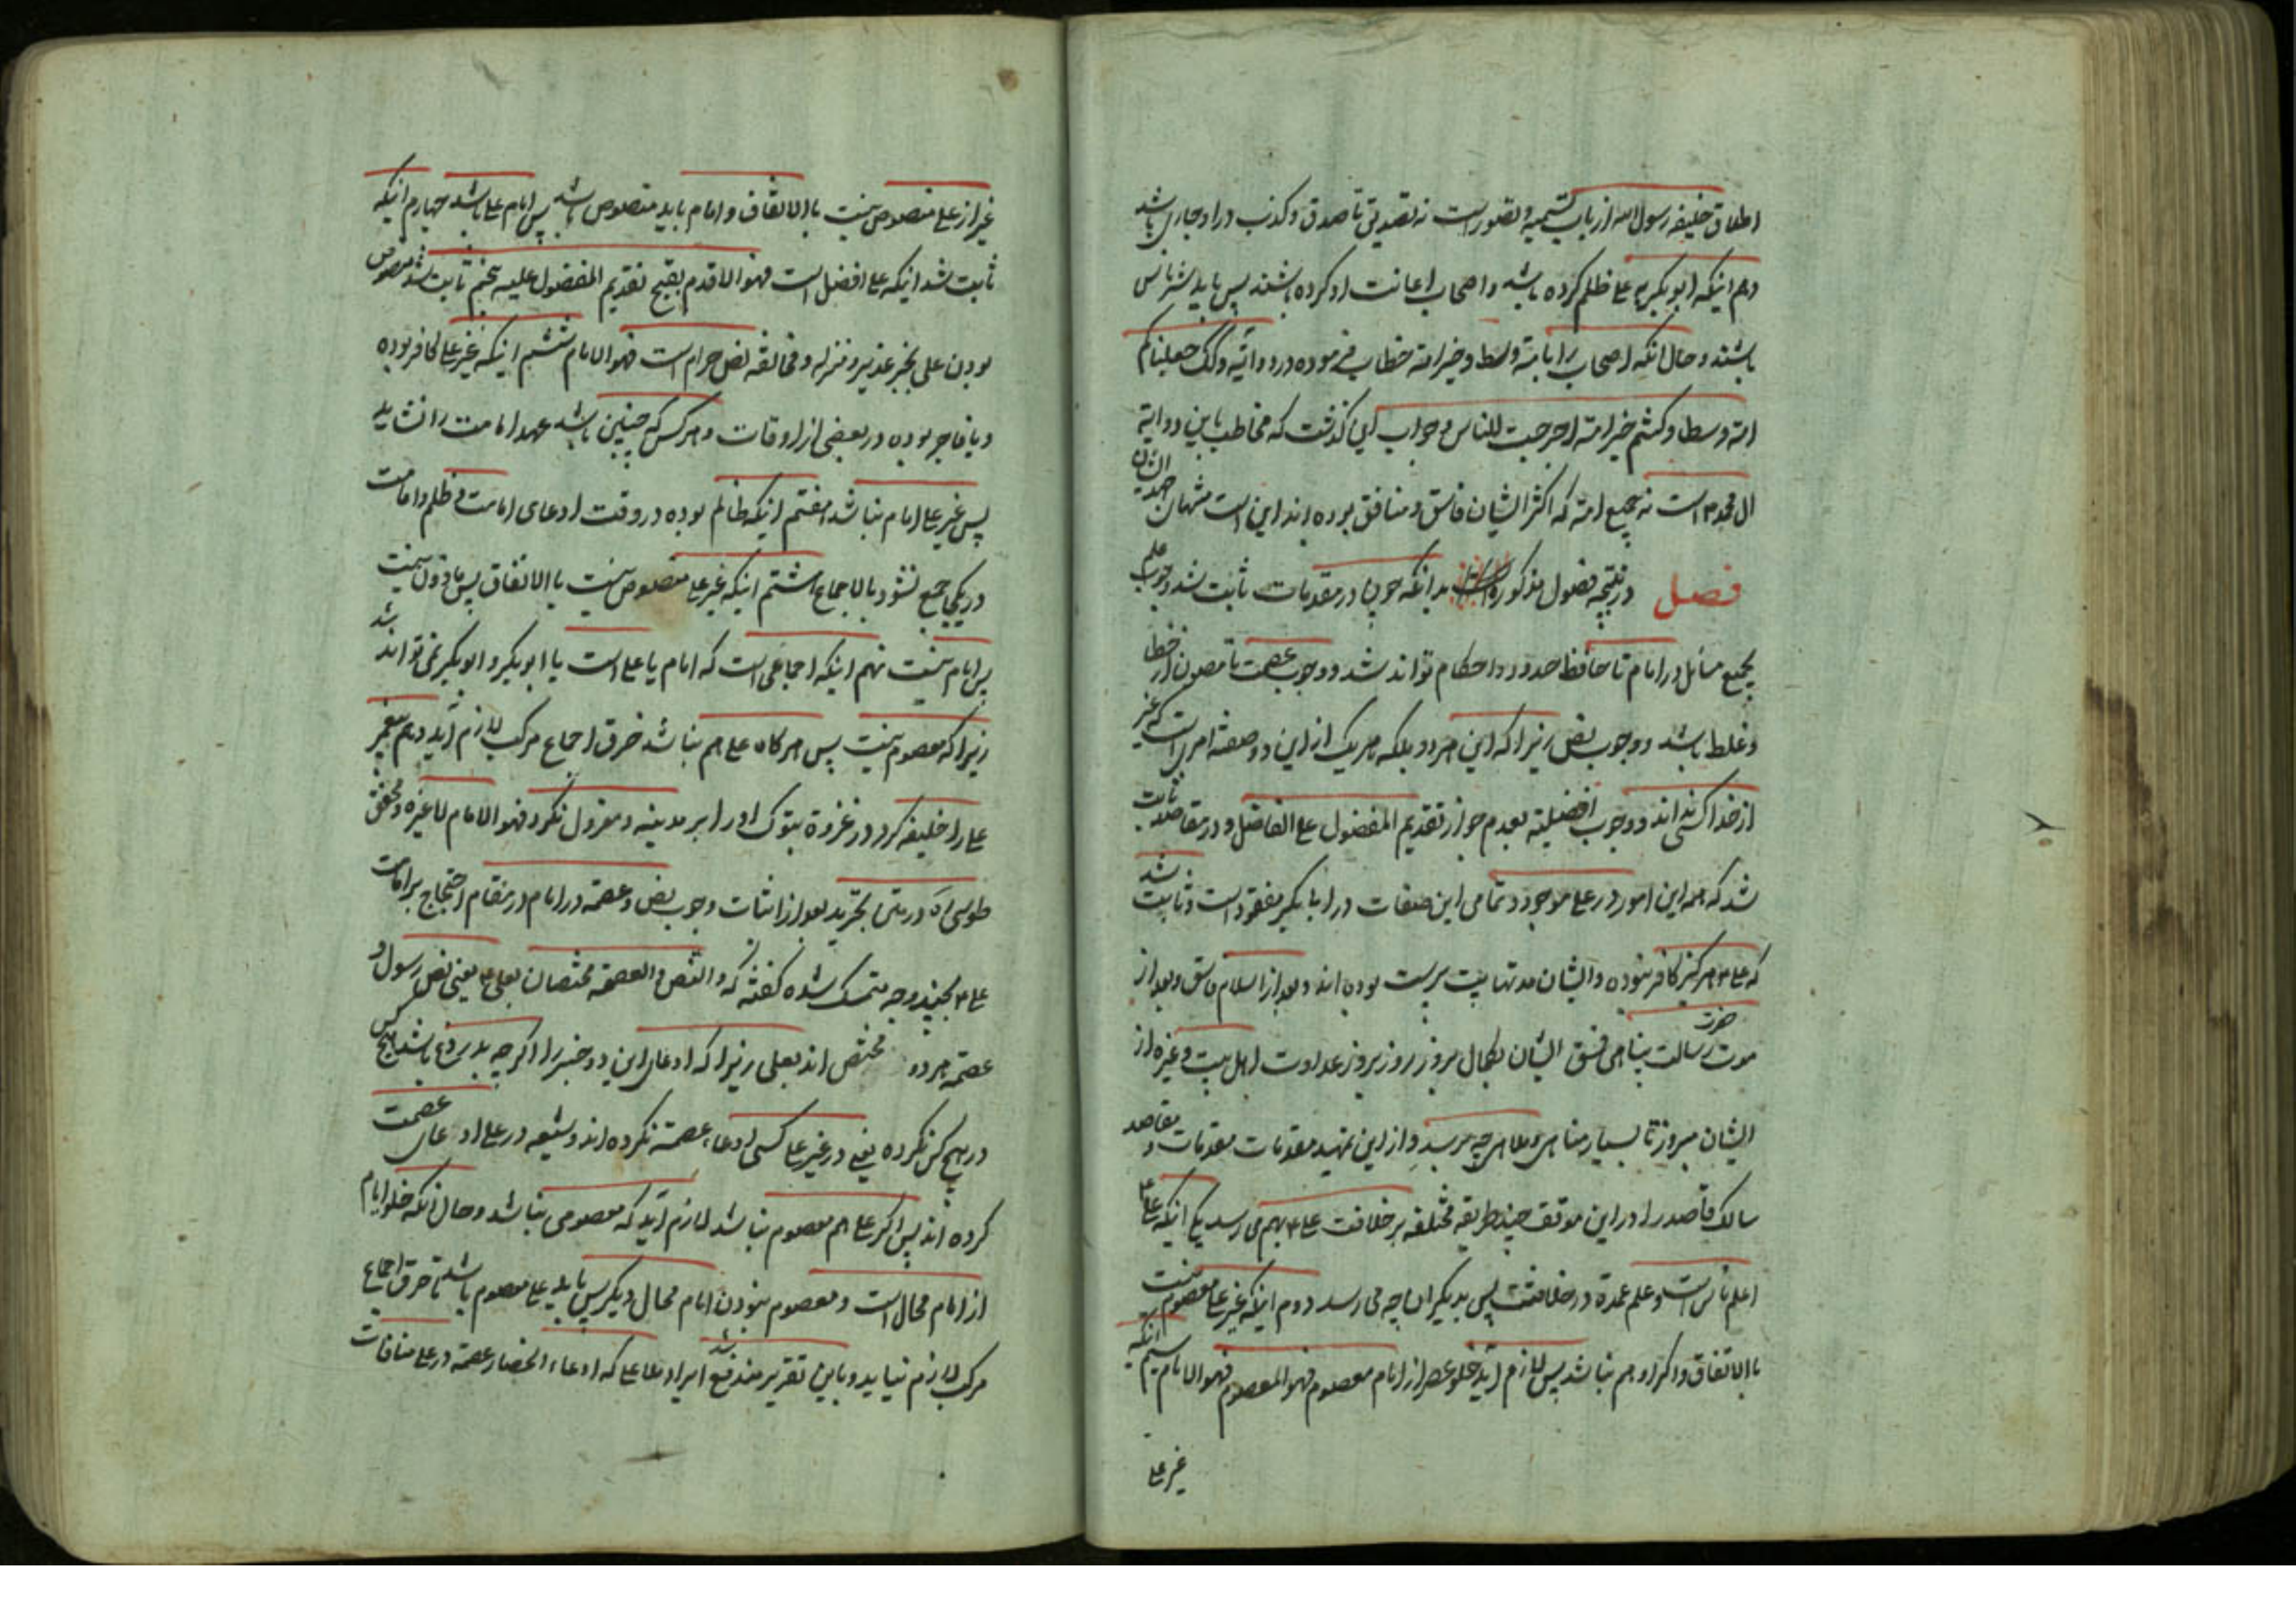 اطلاق خلیفه رسول الله از باب تسمیه و تصور است نه تصدیق تا صدق و کذب در او جاری باشد
دهم اینکه ابو بکر بر علی ظلم کرده باشد و اصحاب اعانت او کرده باشند پس باید شر ناس
باشند و حال انکه اصحاب را بامة وسط و خیر امة خطاب فرموده در دو آیه وکذلک جعلناکم
امة وسطا و کنتم خیر امة اخرجت للناس و جواب این گذشت که مخاطب باین دو آیه
ال محمد است نه جمیع امة که اکثر ایشان فاسق و منافق بوده اند این است منتهای
فصل در نتیجه فصول مذکوره بدانکه چون در مقدمات ثابت شد وجوب علم
بجمیع مسائل در امام تا حافظ حدود و احکام تواند شد و وجوب عصمت تا مصون از خطا
و غلط باشد و وجوب نص زیرا که این هر دو بلکه هر یک از این دو صفة امری است که غیر
از خدا کسی نداند و وجوب افضلیة بعدم جواز تقدیم المفضول علی الفاضل و در مقاصد ثابت
شد که همه این امور در علی موجود و تمامی این صفات در ابا بکر مفقود است و ثابت شد
که علی هرگز کافر نبوده و ایشان مدتها بت پرست بوده اند و بعد از اسلام فاسق و بعد از
موت حضرت رسالت پناهی فسق ایشان بکمال بروز روز بروز عداوت اهل بیت و غیره از
ایشان بروز تا بسیار مناهی و ملاهی چه رسد و از این تمهید مقدمات و مقاصد
سالک قاصد را در این موقف چند طریقه مختلفه بر خلافت علی بهم می رسد یکی اینکه علی
اعلم ناس است و علم عمدة در خلافتست پس بدیگران چه می رسد دوم اینکه غیر علی معصوم نیست
بالاتفاق و اگر او هم نباشد پس لازم آید خلو عصر از امام معصوم فهو المعصوم فهو الامام سیم اینکه
غیر علی
غیر از علی منصوص نیست بالاتفاق و امام باید منصوص باشد پس امام علی باشد چهارم اینکه
ثابت شد اینکه علی افضل است فهو الاقدم بقبح تقدیم المفضول علیه پنجم ثابت شد منصوص
بودن علی بخبر غدیر و منزله و مخالفة نص حرام است فهو الامام ششم اینکه غیر علی کافر بوده
و یا فاجر بوده در بعضی از اوقات و هر کس که چنین باشد عهد امامت را نشاید
پس غیر علی امام نباشد هفتم اینکه ظالم بوده در وقت ادعای امامت و ظلم و امامت
در یکی جمع نشود بالاجماع هشتم اینکه غیر علی منصوص نیست بالاتفاق پس ماذون نیست
پس امام نیست نهم اینکه اجماعی است که امام یا علی است یا ابو بکر و ابو بکر نمی تواند شد
زیرا که معصوم نیست پس هر گاه علی هم نباشد خرق اجماع مرکب لازم آید دهم پیغمبر
علی را خلیفه کرد در غزوة تبوک او را بر مدینه و معزول نکرد فهو الامام لا غیره و محقق
طوسی ره در متن تجرید بعد از اثبات وجوب نص و عصمة در امام در مقام احتجاج بر امامت
علی بچند وجه متمسک شده گفته که والنص والعصمة مختصان بعلی ع یعنی نص رسول و
عصمة هر دو مختص اند بعلی زیرا که ادعای این دو خبر را اگر چه بدروغ باشد هیچ کس
در هیچ کس نکرده یعنی در غیر علی کسی ادعاء عصمة نکرده اند و شیعه در علی ادعای عصمت
کرده اند پس اگر علی هم معصوم نباشد لازم آید که معصومی نباشد و حال آنکه خلو ایام
از امام محال است و معصوم نبودن امام محال دیگر پس باید علی معصوم باشد تا خرق اجماع
مرکب لازم نیاید و باین تقریر مندفع شد ایراد ملا علی که ادعاء انحصار عصمة در علی منافات